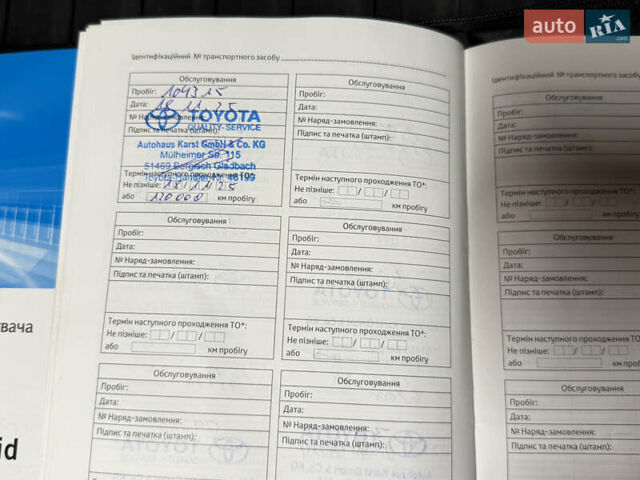 auto RIA .com
Ідентифікаційний № транспортного засобу
Обслуговування
Пробіг: 104315
Дата:
№ Наряд-замовлення:
TOYOTA
QUALITY SERVICE
Підпис та печатка (штамп):
Autohaus Karst GmbH & Co. KG
Mülheimer Str. 115
51469 Bergisch Gladbach
Toyota-Händler Nr. 46199
Термін наступного проходження ТО*:
Не пізніше:
або 120000 км пробігу
Обслуговування
Пробіг:
Дата:
№ Наряд-замовлення:
Підпис та печатка (штамп):
Термін наступного проходження ТО*:
Не пізніше:
або км пробігу
Обслуговування
Пробіг:
Дата:
№ Наряд-замовлення:
Підпис та печатка (штамп):
Термін наступного проходження ТО*:
Не пізніше:
або км пробігу
Обслуговування
Пробіг:
Дата:
№ Наряд-замовлення:
Підпис та печатка (штамп):
Термін наступного проходження ТО*:
Не пізніше:
або км пробігу
Обслуговування
Пробіг:
Дата:
№ Наряд-замовлення:
Підпис та печатка (штамп):
Обслуговування
Пробіг:
Дата:
№ Наряд-замовлення:
Підпис та печатка (штамп):
Ідентифікаційний № транспортного засобу
Пробіг:
Дата:
№ Наряд-замовлення:
Підпис та печатка (штамп):
Термін наступного проходже
Не пізніше:
або
Обслугов
Пробіг:
Дата:
№ Наряд-замовлення:
Підпис та печатка (штамп):
Термін наступного проходж
Не пізніше:
або
Обслугов
Пробіг:
Дата:
№ Наряд-замовлення:
Підпис та печатка (штам
вача
id